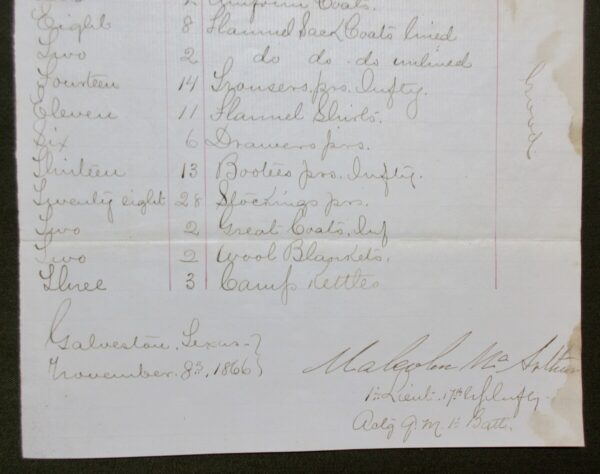 2 Uniform Coats.
Eight 8 Flannel Sack Coats lined
Two 2 do do do unlined
Fourteen 14 Trousers prs. Infty.
Eleven 11 Flannel Shirts.
Six 6 Drawers prs.
Thirteen 13 Bootees prs. Infty.
Twenty eight 28 Stockings prs.
Two 2 Great Coats, Inf
Two 2 Wool Blankets.
Three 3 Camp Kettles
Good
Galveston, Texas }
November 8th, 1866 }
Malcolm McArthur
1st Lieut. 17th Infty.
Actg Q. M. 1st Batt.